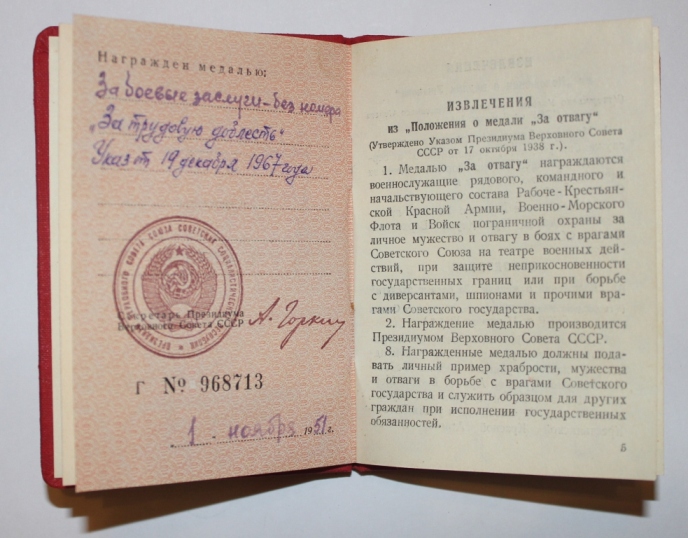 Награжден медалью:
За боевые заслуги - без номера
„За трудовую доблесть“
Указ от 19 декабря 1967 года
Секретарь Президиума
Верховного Совета СССР
А. Горкин
Г № 968713
1 ноября 1951 г.
ИЗВЛЕЧЕНИЯ
из „Положения о медали „За отвагу“
(Утверждено Указом Президиума Верховного Совета
СССР от 17 октября 1938 г.).
1. Медалью „За отвагу“ награждаются
военнослужащие рядового, командного и
начальствующего состава Рабоче-Крестьян-
ской Красной Армии, Военно-Морского
Флота и Войск пограничной охраны за
личное мужество и отвагу в боях с врагами
Советского Союза на театре военных дей-
ствий, при защите неприкосновенности
государственных границ или при борьбе
с диверсантами, шпионами и прочими вра-
гами Советского государства.
2. Награждение медалью производится
Президиумом Верховного Совета СССР.
8. Награжденные медалью должны пода-
вать личный пример храбрости, мужества
и отваги в борьбе с врагами Советского
государства и служить образцом для других
граждан при исполнении государственных
обязанностей.
5